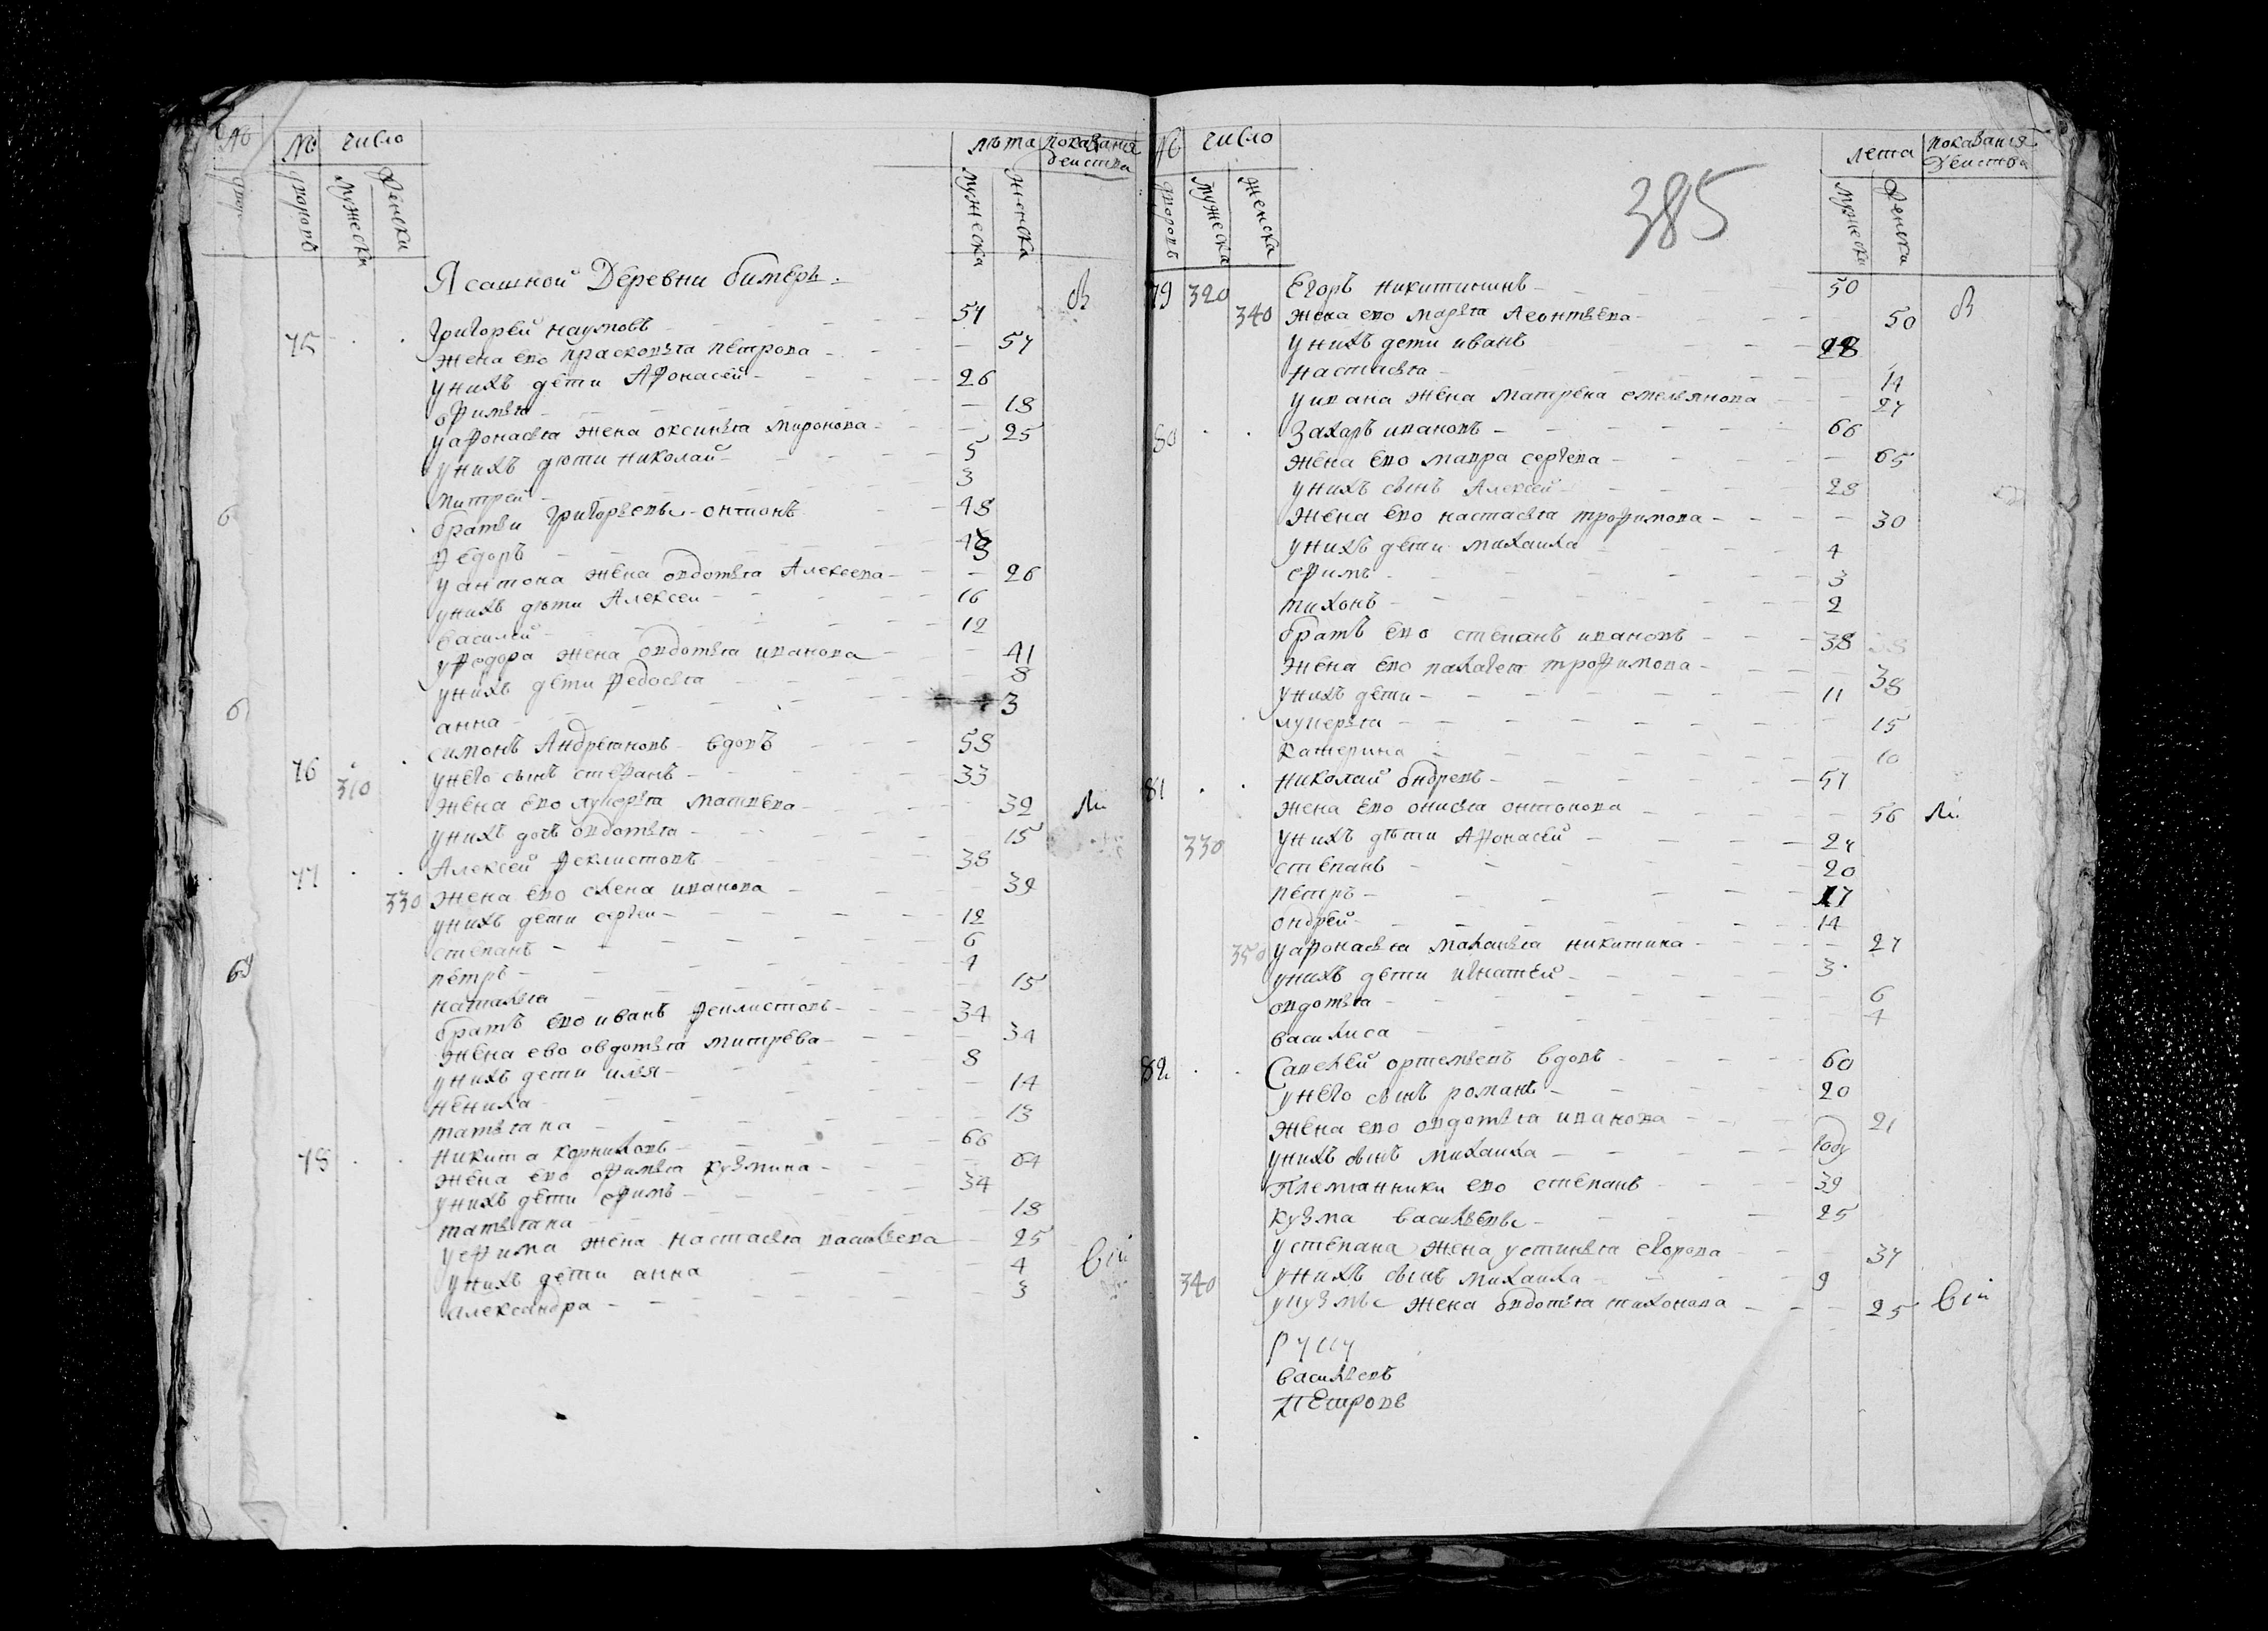 № число лѣта показания
действа
дворовъ мужески женски мужеска женска
Ясашной Деревни бимеръ:
75 Григорей наумовъ 57
жена ево прасковья петрова 57
у нихъ дети Афонасей 26
офимья 18
у афонасья жена оксинья миронова 25
у нихъ дѣти николай 5
митрей 3
братьи григорьевы онтонъ 48
федоръ
у антона жена овдотья Алексева 26
у нихъ дѣти Алексеи 16
василей 12
у федора жена овдотья иванова 41
у нихъ дети федосья 8
анна 3
76 симонъ Андреяновъ вдовъ 58
310 у него сынъ стефанъ 33
жена ево лукерья матвева 32
у нихъ дочь овдотья 15
77 Алексей феклистовъ 38
330 жена ево елена иванова 39
у нихъ дети сергеи 12
степанъ 6
петръ 4
наталья 15
братъ ево иванъ феклистовъ 34
жена ево овдотья митрева 34
у нихъ дети илья 8
ненила 14
татьяна 13
78 никита корниловъ 66
жена ево офимья кузмина 64
у нихъ дети ефимъ 34
татьяна 18
у ефима жена настасья васильева 25
у нихъ дети анна 4
александра 3
№ число лета показания
действа
дворовъ мужеска женска мужески женска
385
79 320 Егоръ никитинъ 50
340 жена ево марья леонтьева 50
у нихъ дети иванъ 28
настасья 14
у ивана жена матрена емельянова 27
80 Захаръ ивановъ 66
жена ево мавра сергева 65
у нихъ сынъ Алексей 28
жена ево настасья трофимова 30
у нихъ дети михаила 4
ефимъ 3
тихонъ 2
братъ ево степанъ ивановъ 38
жена ево палагея трофимова 38
у нихъ дети 11
лукерья 15
катерина 10
81 николай ондревъ 57
жена ево онисья онтонова 56
330 у нихъ дѣти Афонасей 27
степанъ 20
петръ 17
ондрей 14
350 у афонасья маланья никитина 27
у нихъ дети игнатей 3
овдотья 6
василиса 4
82 Савелей ортемьевъ вдовъ 60
у него сынъ романъ 20
жена ево овдотья иванова 21
у нихъ сынъ михаила году
Племянники ево степанъ 39
кузма васильевы 25
у степана жена устинья егорова 37
340 у нихъ сынъ михаила 9
у кузмы жена овдотья тихонова 25
руку
васильевъ
Петровъ